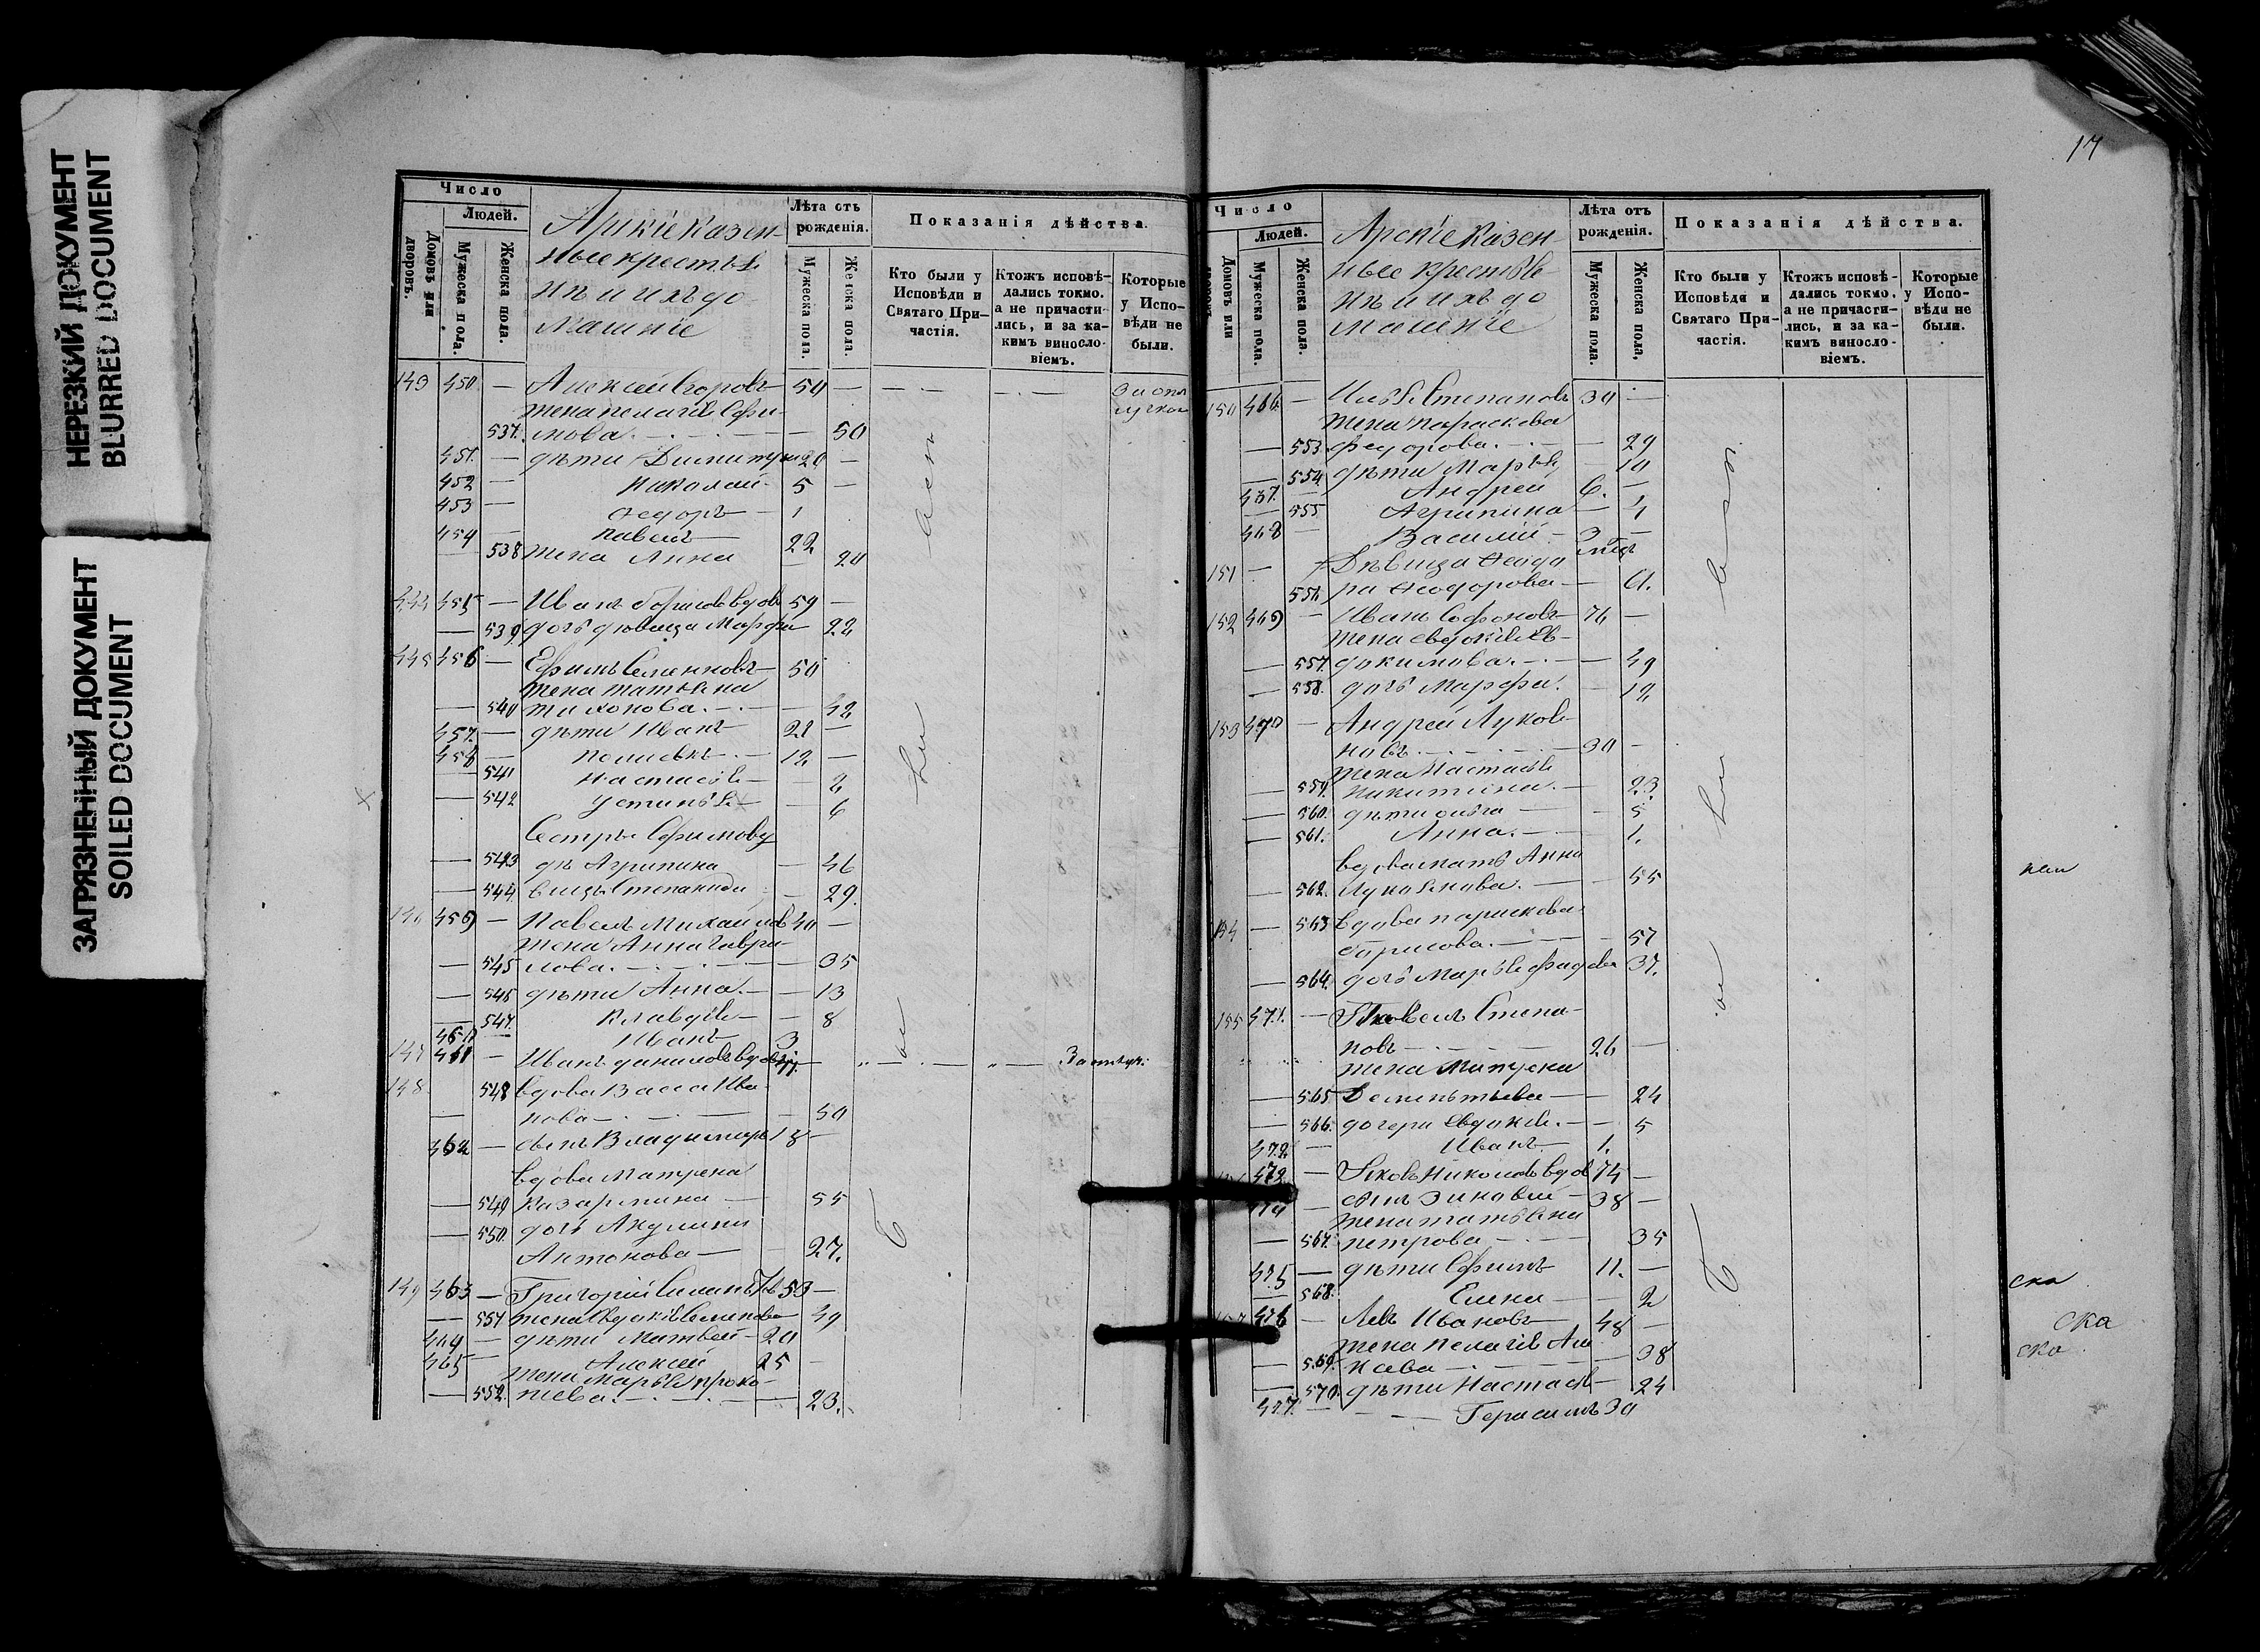 НЕРЕЗКИЙ ДОКУМЕНТ
BLURRED DOCUMENT
ЗАГРЯЗНЕННЫЙ ДОКУМЕНТ
SOILED DOCUMENT
Число
Людей.
Домовъ или дворовъ.
Мужеска пола.
Женска пола.
Арскіе казен-
ные крестья
не и ихъ до
машніе
Лѣта отъ рожденія.
Мужеска пола.
Женска пола.
Показанія дѣйства.
Кто были у Исповѣди и Святаго Причастія.
Ктожъ исповѣдались токмо, а не причастились, и за какимъ винословіемъ.
Которые у Исповѣди не были.
143 450 — Алексей Егоровъ 54 — За отлучкой
жена Пелагія Ефи-
537. мова — 50
451. — дѣти Димитрій 20 —
452 — Николай 5 —
453 — Ѳедоръ 1
454 — Павелъ 22
538 жена Анна — 20
144 455 — Иванъ Борисовъ вдовъ 59 —
— 539 дочь дѣвица Марфа 22
145 456 — Ефимъ Семеновъ 50
жена Татьяна
— 540 Тихонова — 42
457. — дѣти Иванъ 21 —
458 — 12 —
— 541 Настасья — 2
— 542 Устинья — 6
Сестры Ефимову
— 543 дѣ Агрипина — 46
— 544. вицы Степанида — 29.
146 459 — Павелъ Михайловъ 40 —
жена Анна Гаври-
— 545 лова — 35
— 546 дѣти Анна — 13
— 547. Клавдія — 8
460 — Иванъ 3
147 461 — Иванъ Даниловъ вдовъ — За отлуч.
148 548 вдова Васса Ива
нова — 50
462 — сынъ Владимиръ 18 —
вдова Матрена
— 549 Назаркина — 55
— 550. дочь Акулина
Антонова — 27.
149 463 — Григорий 53 —
— 551 жена Евдокія Семенова 49
464 — дѣти Матвей 20
465 — Алексей 25 —
жена Марья Проко-
— 552. піева — 23.
17
Число
Людей.
Домовъ или
Мужеска пола.
Женска пола.
Арскіе казен-
ные крестья
не и ихъ до
машніе
Лѣта отъ рожденія.
Мужеска пола.
Женска пола.
Показанія дѣйства.
Кто были у Исповѣди и Святаго Причастія.
Ктожъ исповѣдались токмо, а не причастились, и за какимъ винословіемъ.
Которые у Исповѣди не были.
150 466. — Илья Степановъ 30 —
жена Параскева
— 553. Федорова — 29
— 554. дѣти Марья — 10
467. — Андрей 6. —
— 555 Агрипина — 4
468 — Василій 3 —
151 — Дѣвица Ѳеодо
556. ра Ѳеодорова — 61.
152 469 — Иванъ Софоновъ 74 —
жена Евдокія Ев-
— 557. докимова — 49
— 558. дочь Марфа — 12
153 470 — Андрей Лукоя
новъ — 30 —
жена Настасья
— 559. Никитина — 23.
— 560. дѣти Ольга — 5
— 561. Анна — 1.
вдова мать Анна
— 562. Лукоянова — 55
154 — 563 вдова Параскева
Борисова — 57
— 564. дочь Марья — 37.
155 471. — Павелъ Степа-
новъ — 26 —
жена Матрена
— 565 Дементьева — 24
— 566. дочери Евдокія — 5
472. — Иванъ 1.
473. — Яковъ Николаевъ вдов 74 —
474 — сынъ Зиновій 38 —
жена Татьяна
— 567. Петрова — 35
475 — дѣти Ефимъ 11. —
— 568. Елена — 2
476 — Левъ Ивановъ 48 —
жена Пелагія Али
— 569. кіева — 38
— 570. дѣти Настасья — 24
477. — Герасимъ 30
ска
ска
ска